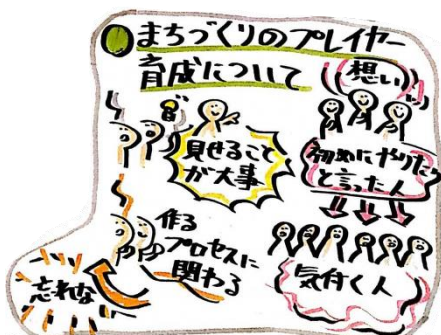 まちづくりのプレイヤー
育成について
想い
見せること
が大事
初めにやりたい
と言った人
作る
プロセスに
関わる
気付く人
忘れな